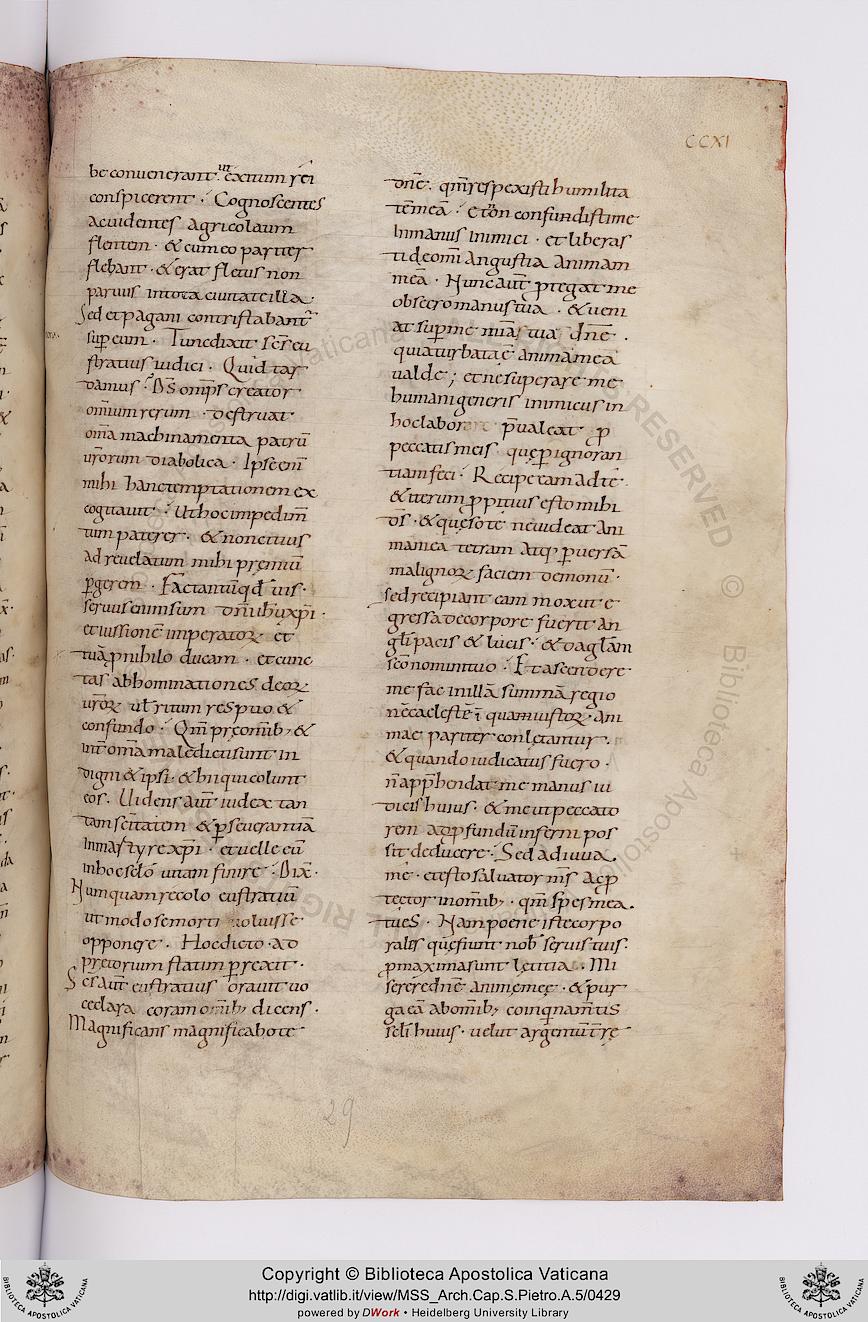 CCXI
be conuenerant ut exitum rei
conspicerent · Cognoscentes
ac uidentes agricolaum
flentem · & cum eo pariter
flebant · & erat fletus non
paruus in tota ciuitate illa ·
Sed et pagani contristabant̄
sup eum · Tunc dixit scs̄ eu
stratius iudici · Quid tar
damus · Ds̄ omp̄s creator
omīum rerum · destruat
om̄a machinamenta patrū
ur̄orum diabolica · Ipse enī
mihi hanc temptationem ex
cogitauit · Ut hoc impedim̄
tum paterer · & non citius
ad reuelatum mihi premiū
ꝑgerem · Fac tantū qd̄ uis ·
seruus enim sum dn̄i ihū xp̄i ·
et iussionē imperatoꝝ et
tuā ꝓ nihilo ducam · et cunc
tas abhominationes deoꝝ
ur̄oꝝ uel ritum respuo &
confundo · Qm̄ p̄ceom̄ib; &
int̄ om̄a maledicti sunt in
digni & ipsi · & hii qui colunt
eos · Uidens aut̄ iudex tan
tam sc̄itatem & ꝑseuerantiā
in martyre xp̄i · et uelle eū
in hoc sc̄lo uitam finire · Dix̄ ·
Numquam recolo eustratiū
ut modo se morti uoluisse
opponere · Hoc dicto · ad
pretorium statim ꝑrexit ·
Scs̄ aut̄ eustratius orauit uo
ce clara coram omīb; dicens ·
Magnificans magnificabo te
dn̄e · qm̄ respexisti humilita
tē meā · et n̄ confundisti me
In manus inimici · et liberas
ti de om̄i angustia animam
meā · Nunc aut̄ ꝓtegat me
obsecro manus tua · & ueni
at sup me mīa tua dn̄e ·
quia turbata ē anima mea
ualde ; et ne superare me
humani generis inimicus in
hoc labore p̄ualeat ꝓ
peccatis meis · quę ꝑ ignoran
tiam feci · Recipe eam ad te ·
& iterum ꝓpitius esto mihi
ds̄ · & quęso te ne uideat ani
ma mea tetram atq; ꝑuersā
malignoꝝ faciem demonū ·
sed recipiant eam mox ut e
gressa de corpore fuerit an
gl̄i pacis & lucis · & da gl̄am
sc̄o nomini tuo · Et ascendere
me fac in illā summā regio
nē caelestē ī quam iustoꝝ ani
mae pariter conlętantur ·
& quando iudicatus fuero ·
n̄ app̄hendat me manus iu
dicis huius · & me ut peccato
rem ad ꝓfundū inferni pos
sit deducere · Sed adiuua
me · et esto saluator m̄s ac ꝓ
tector in om̄ib; · qm̄ spes mea
tu es · Nam poene iste corpo
rales quę fiunt nob̄ seruis tuis ·
ꝓ maxima sunt lętitia · Mi
serere dn̄e animę meę · & pur
ga eā ab om̄ib; coinquinam̄tis
sc̄li huius · uelut argentū t̄re
29
Copyright © Biblioteca Apostolica Vaticana
http://digi.vatlib.it/view/MSS_Arch.Cap.S.Pietro.A.5/0429
powered by DWork • Heidelberg University Library